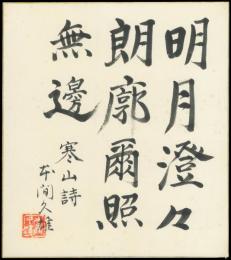 明月澄々
朗廓爾照
無邊
寒山詩
本間久雄